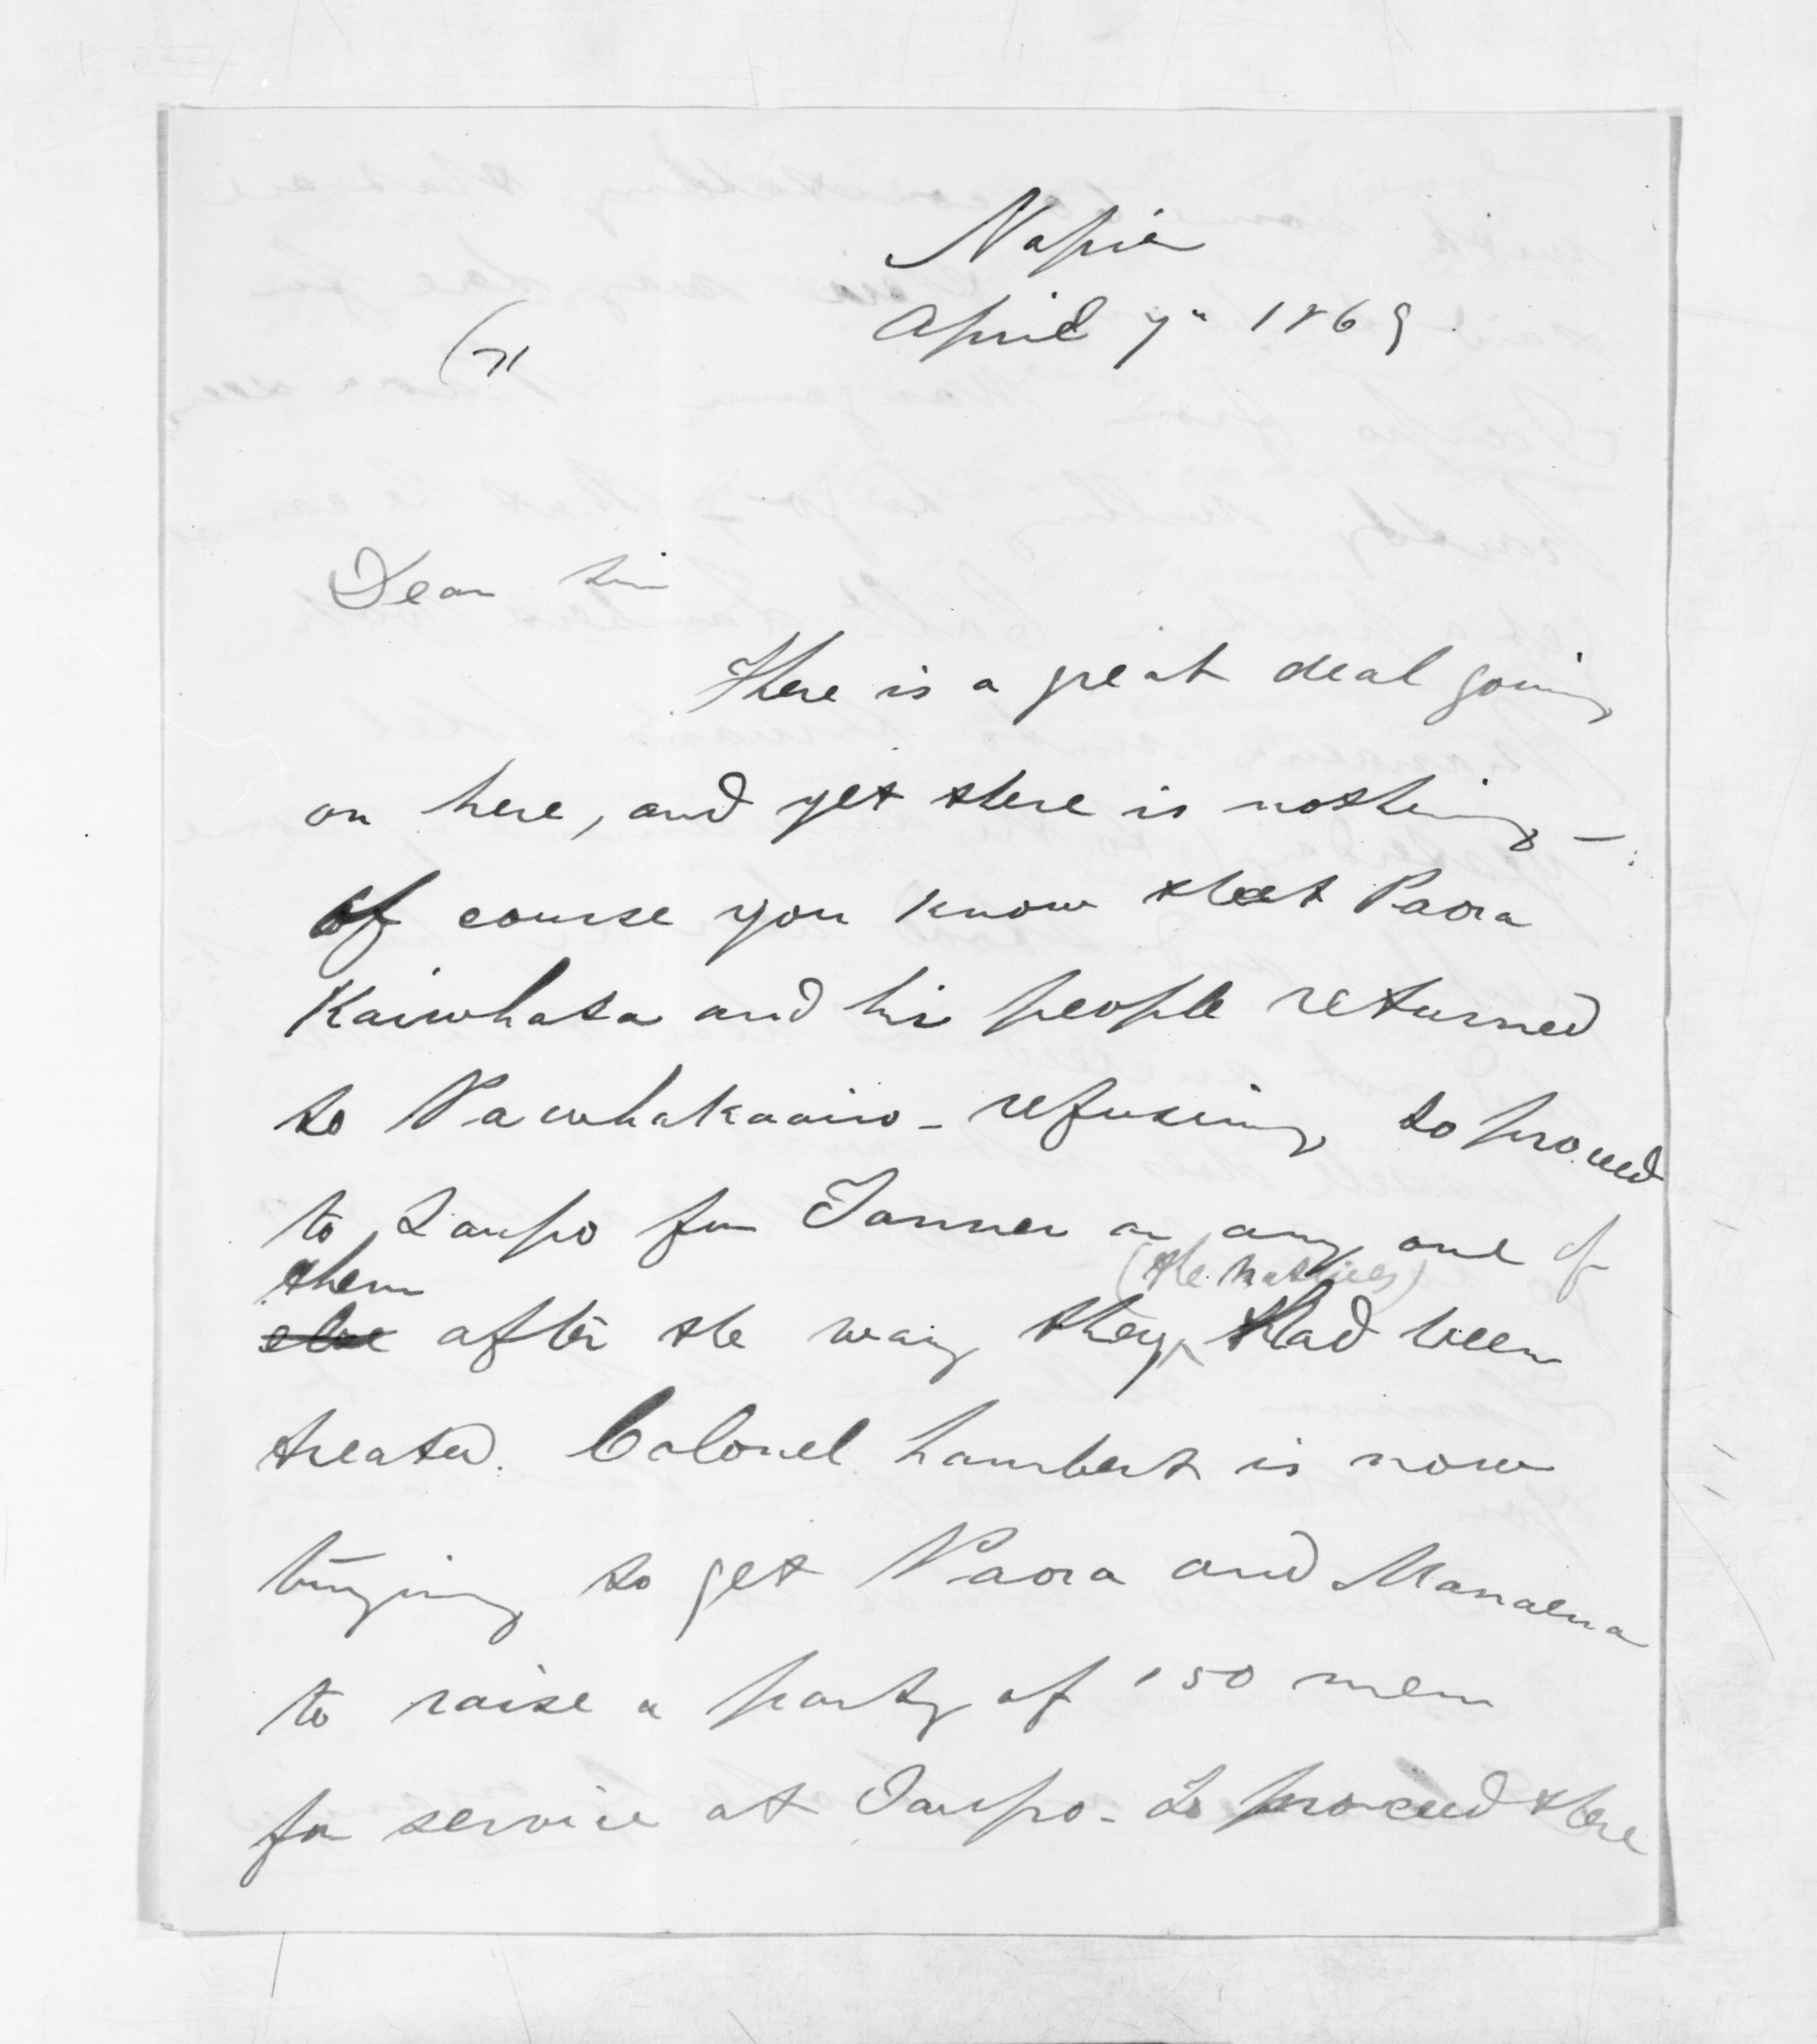 Napier
April 7" 1869
(71
Dear Sir
There is a great deal going
on here, and yet there is nothing -
of course you know that Paora
Kaiwhata and his people returned
to Pawhakaairo - refusing to proceed
to Taupo for Tanner or any one of
them
(the natives)
else after the way they had been
treated. Colonel Lambert is now
trying to get Paora and Manaena
to raise a party of 150 men
for service at Taupo - To proceed there